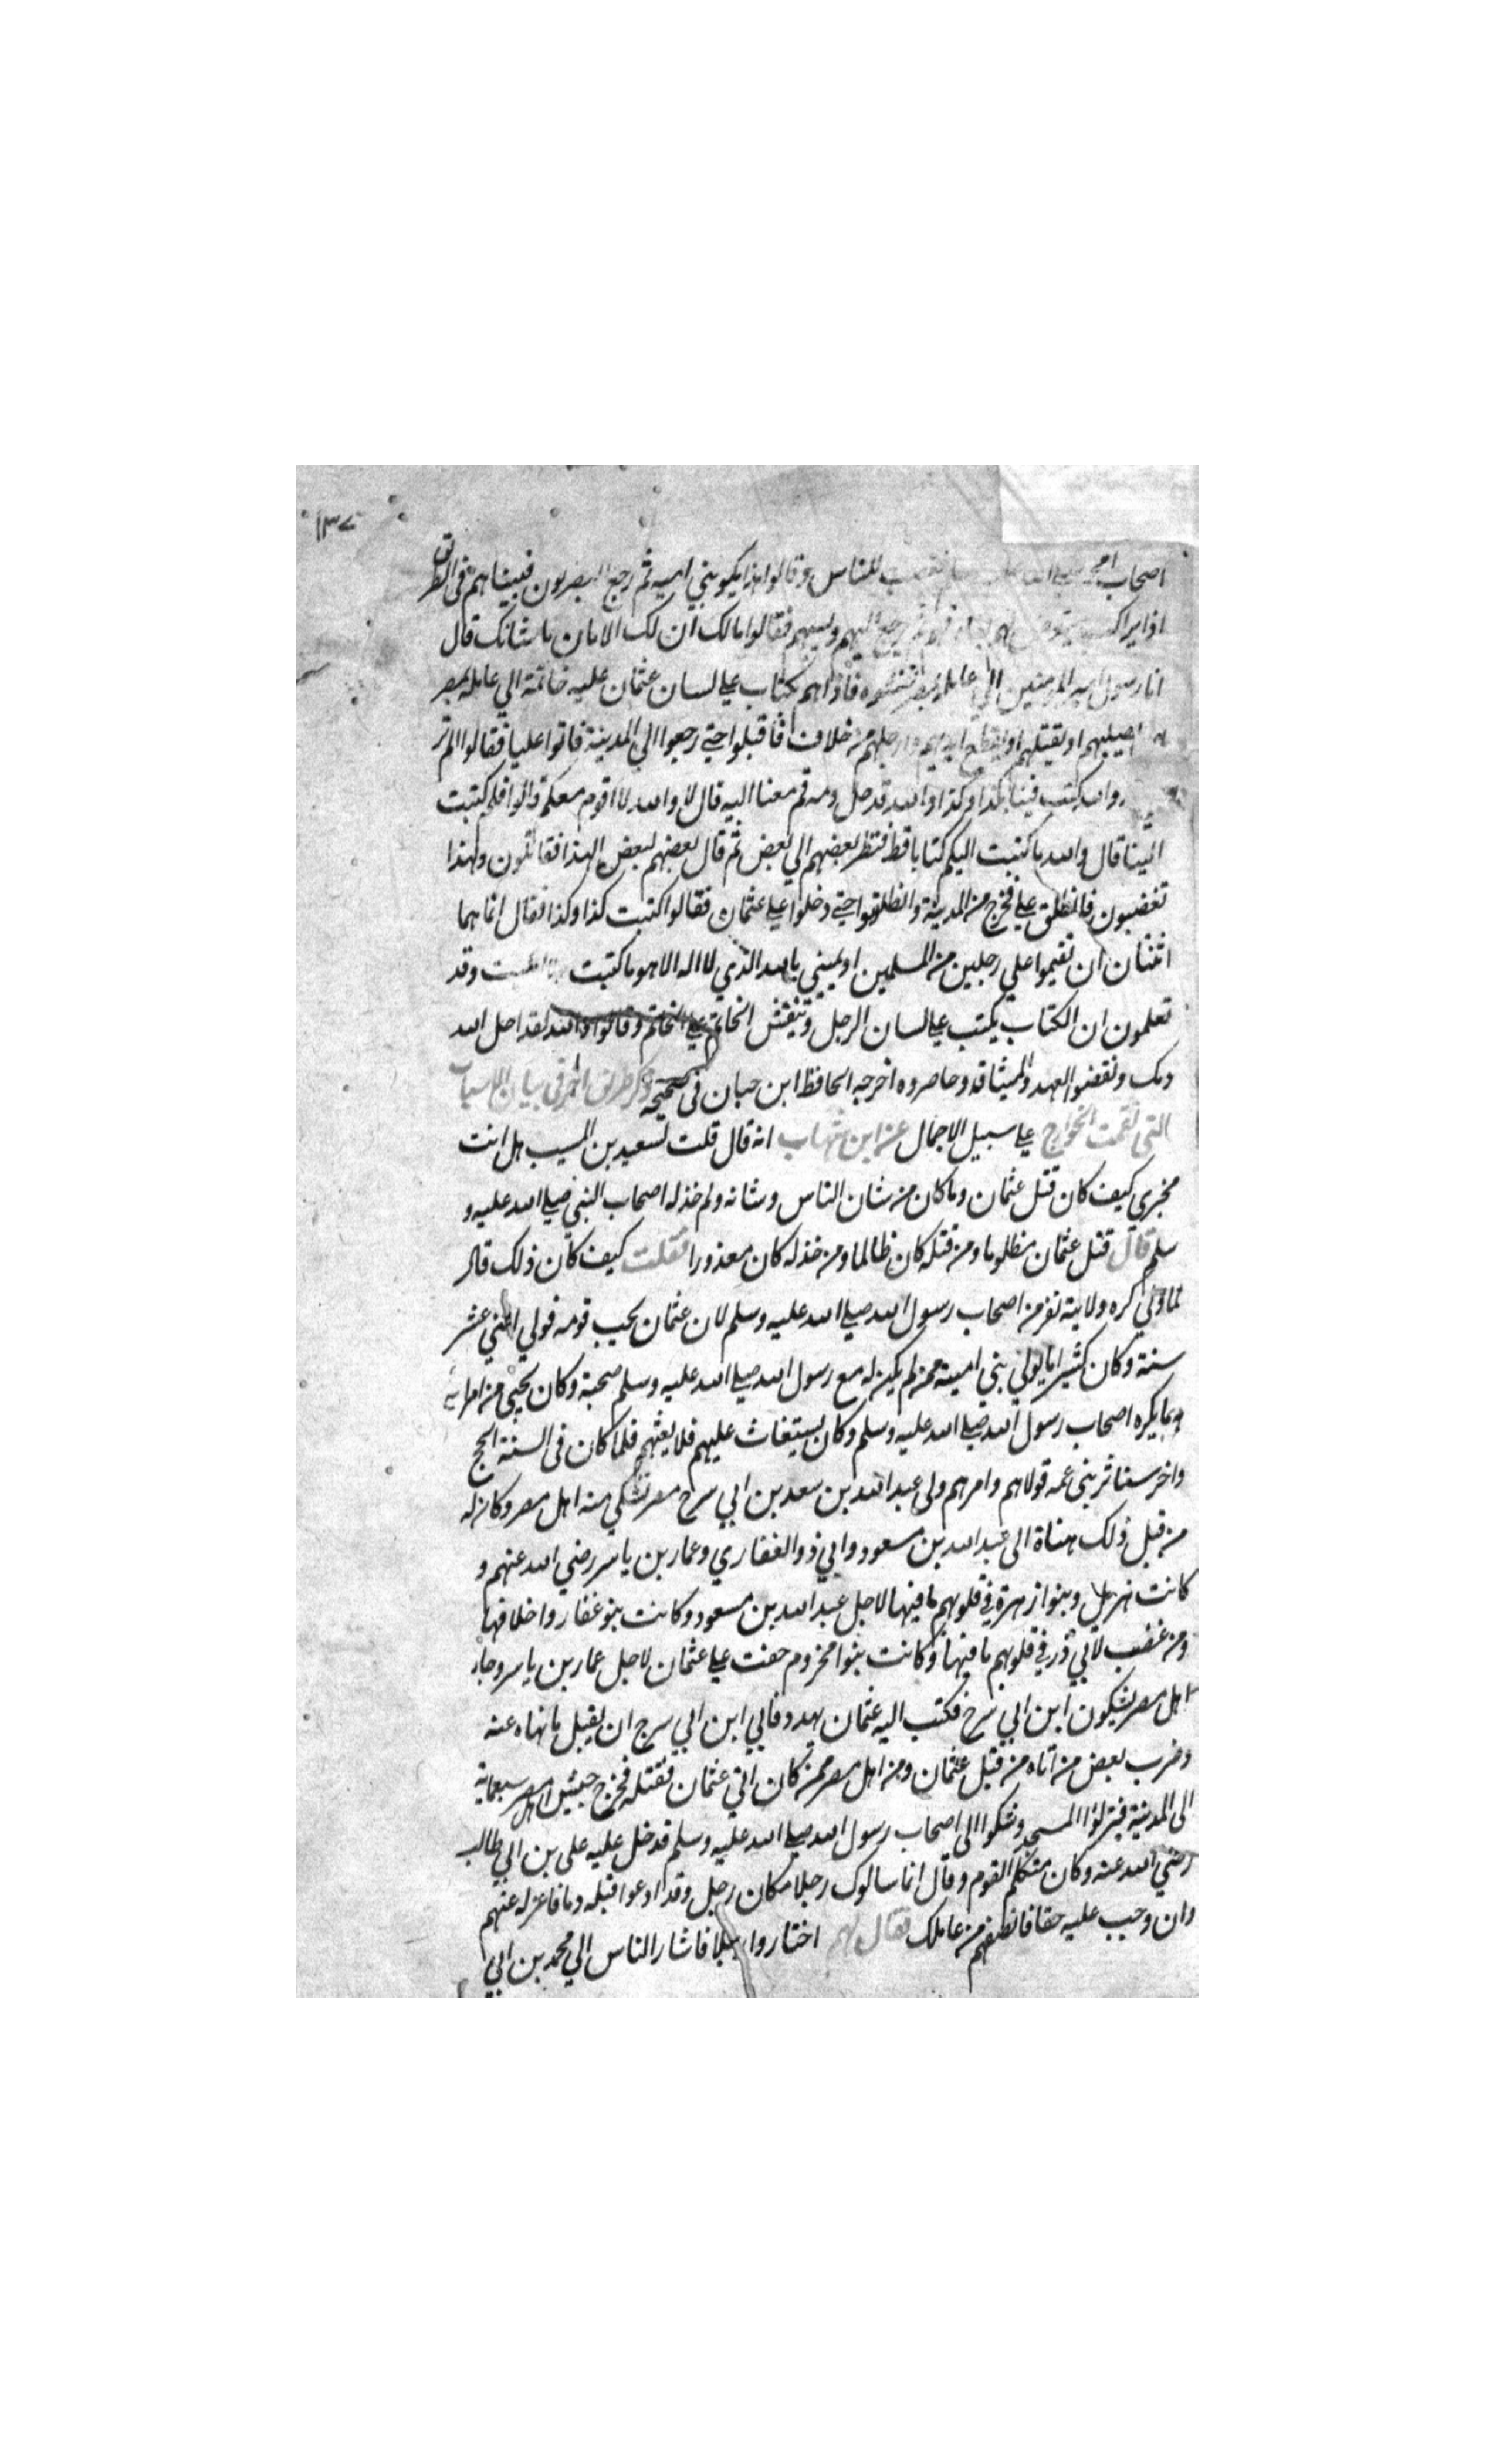 ١٣٧
اصحاب للناس وقالوا هذا يكيد بني اميه ثم رجع المصريون فبينا هم في الطريق
اذا براكب فقالوا مالك ان لك الامان ما شانك قال
انا رسول امير المومنين الي عامله بمصر ففتشوه فاذا هم بكتاب علي لسان عثمان عليه خاتمة الي عامله بمصر
يصلبهم او يقتلهم او يقطع ايديهم وارجلهم من خلاف فاقبلوا حتي رجعوا الي المدينة فاتوا عليا فقالوا الم تر
كتب فينا بكذا وكذا والله قد حل دمه قم معنا اليه قال لا والله لا اقوم معكم قالوا فلم كتبت
الينا قال والله ما كتبت اليكم كتابا قط فنظر بعضهم الي بعض ثم قال بعضهم لبعض الهذا تقاتلون ولهذا
تغضبون فانطلق علي فخرج من المدينة وانطلقوا حتي دخلوا علي عثمان فقالوا كتبت كذا وكذا فقال انما هما
اثنتان ان تقيموا علي رجلين من المسلمين او يميني بالله الذي لا اله الا هو ما كتبت وقد
تعلمون ان الكتاب يكتب علي لسان الرجل وينقش الخاتم علي الخاتم وقالوا والله لقد احل الله
دمك ونقضوا العهد والميثاقه وحاصروه اخرجه الحافظ ابن حبان في صحيحه ذكر طريق اخر في بيان الاسباب
التي نقمت الخوارج علي سبيل الاجمال عن ابن شهاب انه قال قلت لسعيد بن المسيب هل انت
مخبري كيف كان قتل عثمان وما كان من شان الناس وشانه ولم خذله اصحاب النبي صلي الله عليه و
سلم قال قتل عثمان مظلوما ومن قتله كان ظالما ومن خذله كان معذورا فقلت كيف كان ذلك قال
لما ولي كره ولايته نفر من اصحاب رسول الله صلي الله عليه وسلم لان عثمان يحب قومه فولي اثني عشر
سنة وكان كثيرا ما يولي بني امية ممن لم يكن له مع رسول الله صلي الله عليه وسلم صحبة وكان يجيي من امرائه
ما يكره اصحاب رسول الله صلي الله عليه وسلم وكان يستغاث عليهم فلا يغثهم فلما كان في السنة الحج
واخر استاثر بني عمه فولاهم وامرهم ولي عبد الله بن سعد بن ابي سرح مصر فشكي منه اهل مصر وكان له
من قبل ذلك هناة الي عبد الله بن مسعود وابي ذو الغفاري وعمار بن ياسر رضي الله عنهم و
كانت هزيل وبنوا زهرة في قلوبهم ما فيها لاجل عبد الله بن مسعود وكانت بنو غفار واخلافها
ومن غضب لابي ذر في قلوبهم ما فيها وكانت بنوا مخزوم حفت علي عثمان لاجل عمار بن ياسر وجاء
اهل مصر يشكون ابن ابي سرح فكتب اليه عثمان يهدد فابي ابن ابي سرح ان يقبل ما نهاه عنه
وضرب بعض من اتاه من قبل عثمان ومن اهل مصر ممن كان اتي عثمان فقتله فخرج جيش اهل مصر سبعماية
الي المدينة فنزلوا المسجد وشكوا الي اصحاب رسول الله صلي الله عليه وسلم فدخل عليه علي بن ابي طالب
رضي الله عنه وكان متكلم القوم وقال انما سالوك رجلا مكان رجل وقد ادعوا قبله دما فاعزله عنهم
وان وجب عليه حقا فانصفهم من عاملك فقال لهم اختاروا رجلا فاشار الناس الي محمد بن ابي